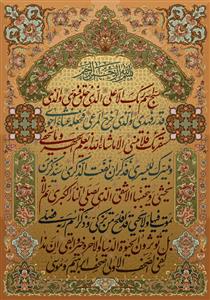 بسم الله الرحمن الرحیم
سبح اسم ربک الاعلی الذی خلق فسوی والذی
قدر فهدی والذی اخرج المرعی فجعله غثاء احوی
سنقرئک فلا تنسی الا ما شاء الله انه یعلم الجهر وما یخفی
ونیسرک للیسری فذکر ان نفعت الذکری سیذکر من
یخشی ویتجنبها الاشقی الذی یصلی النار الکبری ثم لا
یموت فیها ولا یحیی قد افلح من تزکی وذکر اسم ربه فصلی
بل تؤثرون الحیوة الدنیا والاخرة خیر وابقی ان هذا
لفی الصحف الاولی صحف ابراهیم وموسی